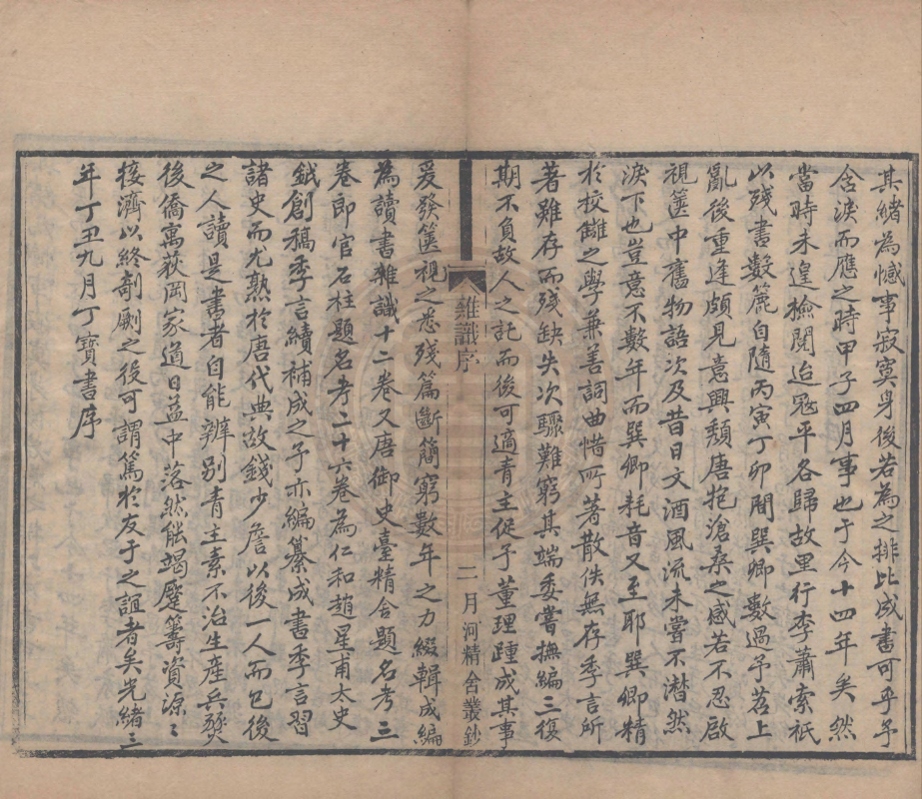 其緒為憾事寂寞身後若為之排比成書可乎予
含淚而應之時甲子四月事也于今十四年矣然
當時未遑檢閱迨寇平各歸故里行李蕭索祇
以殘書數簏自隨丙寅丁卯間巽卿數過予苕上
亂後重逢頗見意興頹唐抱滄桑之感若不忍啟
視篋中舊物語次及昔日文酒風流未嘗不潸然
淚下也豈意不數年而巽卿耗音又至耶巽卿精
於校讎之學兼善詞曲惜所著散佚無存季言所
著雖存而殘缺失次驟難窮其端委嘗撫編三復
期不負故人之託而後可適青主促予董理踵成其事
雜識序
二
月河精舍叢鈔
爰發篋視之悉殘篇斷簡窮數年之力綴輯成編
為讀書雜識十二卷又唐御史臺精舍題名考三
卷郎官石柱題名考二十六卷為仁和趙星甫太史
鉞創稿季言續補成之予亦編纂成書季言習
諸史而尤熟於唐代典故錢少詹以後一人而已後
之人讀是書者自能辨別青主素不治生產兵燹
後僑寓荻岡家道日益中落然能竭蹷籌資源〻
接濟以終剞劂之役可謂篤於友于之誼者矣光緒三
年丁丑九月丁寶書序